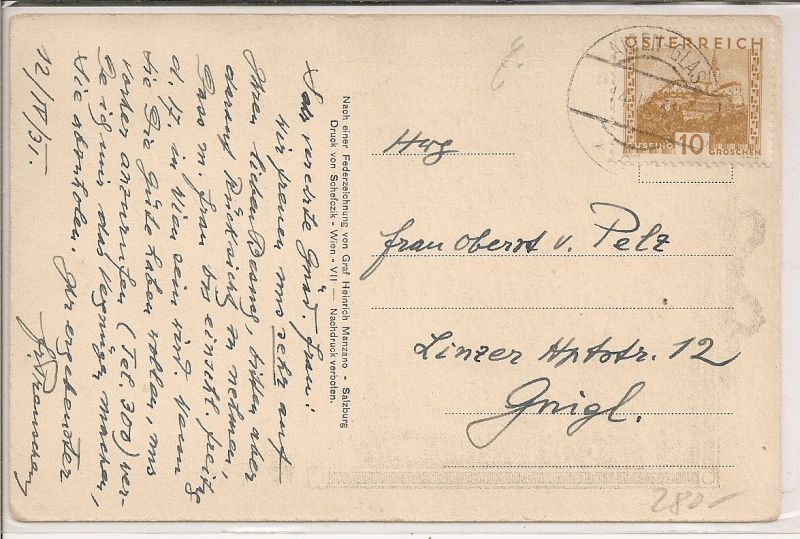 Sehr verehrte Gnäd. Frau!
Wir freuen uns sehr auf
Ihren lieben Besuch, bitten aber
darauf Rücksicht zu nehmen,
dass m. Frau bis einschl. Freitag
d. 17. in Wien sein wird. Wenn
Sie die Güte haben wollen, uns
vorher anzurufen (Tel. 300) wer-
de ich mir das Vergnügen machen,
Sie abzuholen. Ihr ergebenster
12/IV/31.
Nach einer Federzeichnung von Graf Heinrich Manzano - Salzburg
Druck von Schefczik - Wien - VII — Nachdruck verboten.
ÖSTERREICH
AIGEN GLAS
10
GROSCHEN
Hwg
Frau Oberst v. Pelz
Linzer Hptstr. 12
Gnigl.
280-